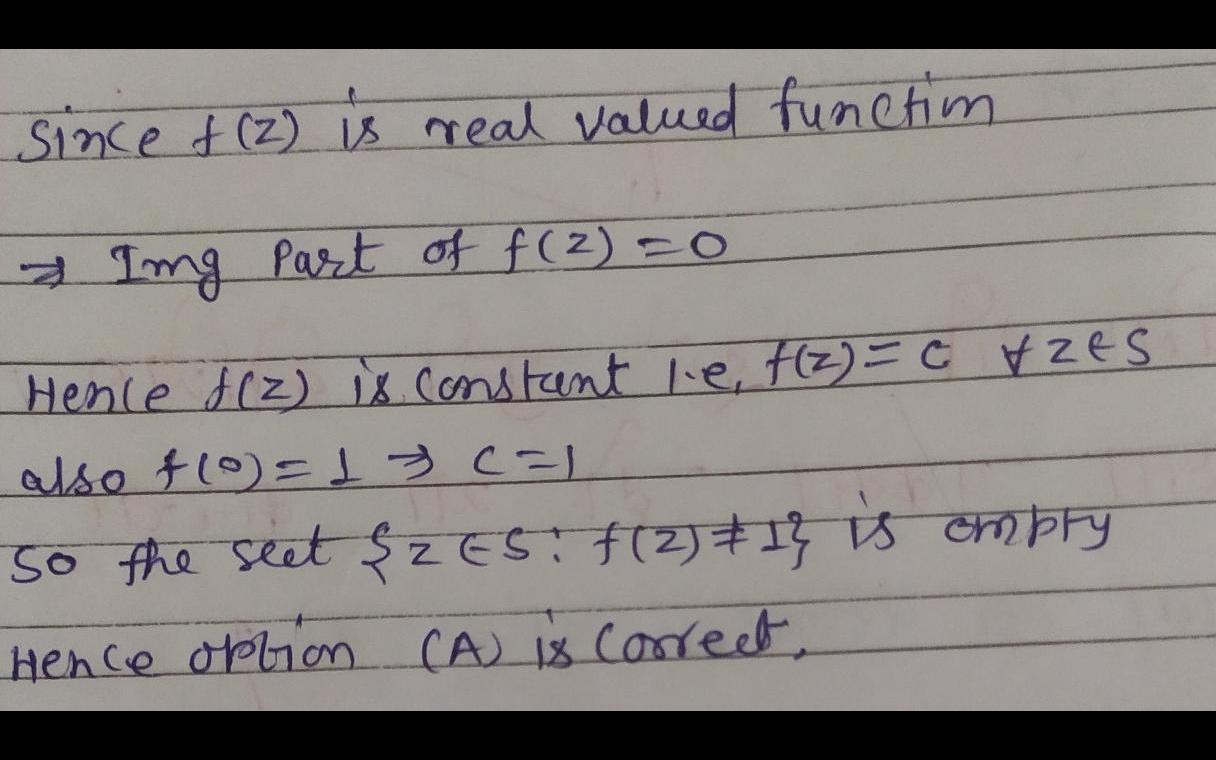 Since f(z) is real valued function
⇒ Img Part of f(z) = 0
Hence f(z) is constant i.e, f(z) = c ∀ z ∈ S
also f(0) = 1 ⇒ c = 1
So the seet {z ∈ S : f(z) ≠ 1} is empty
Hence option (A) is Correct.